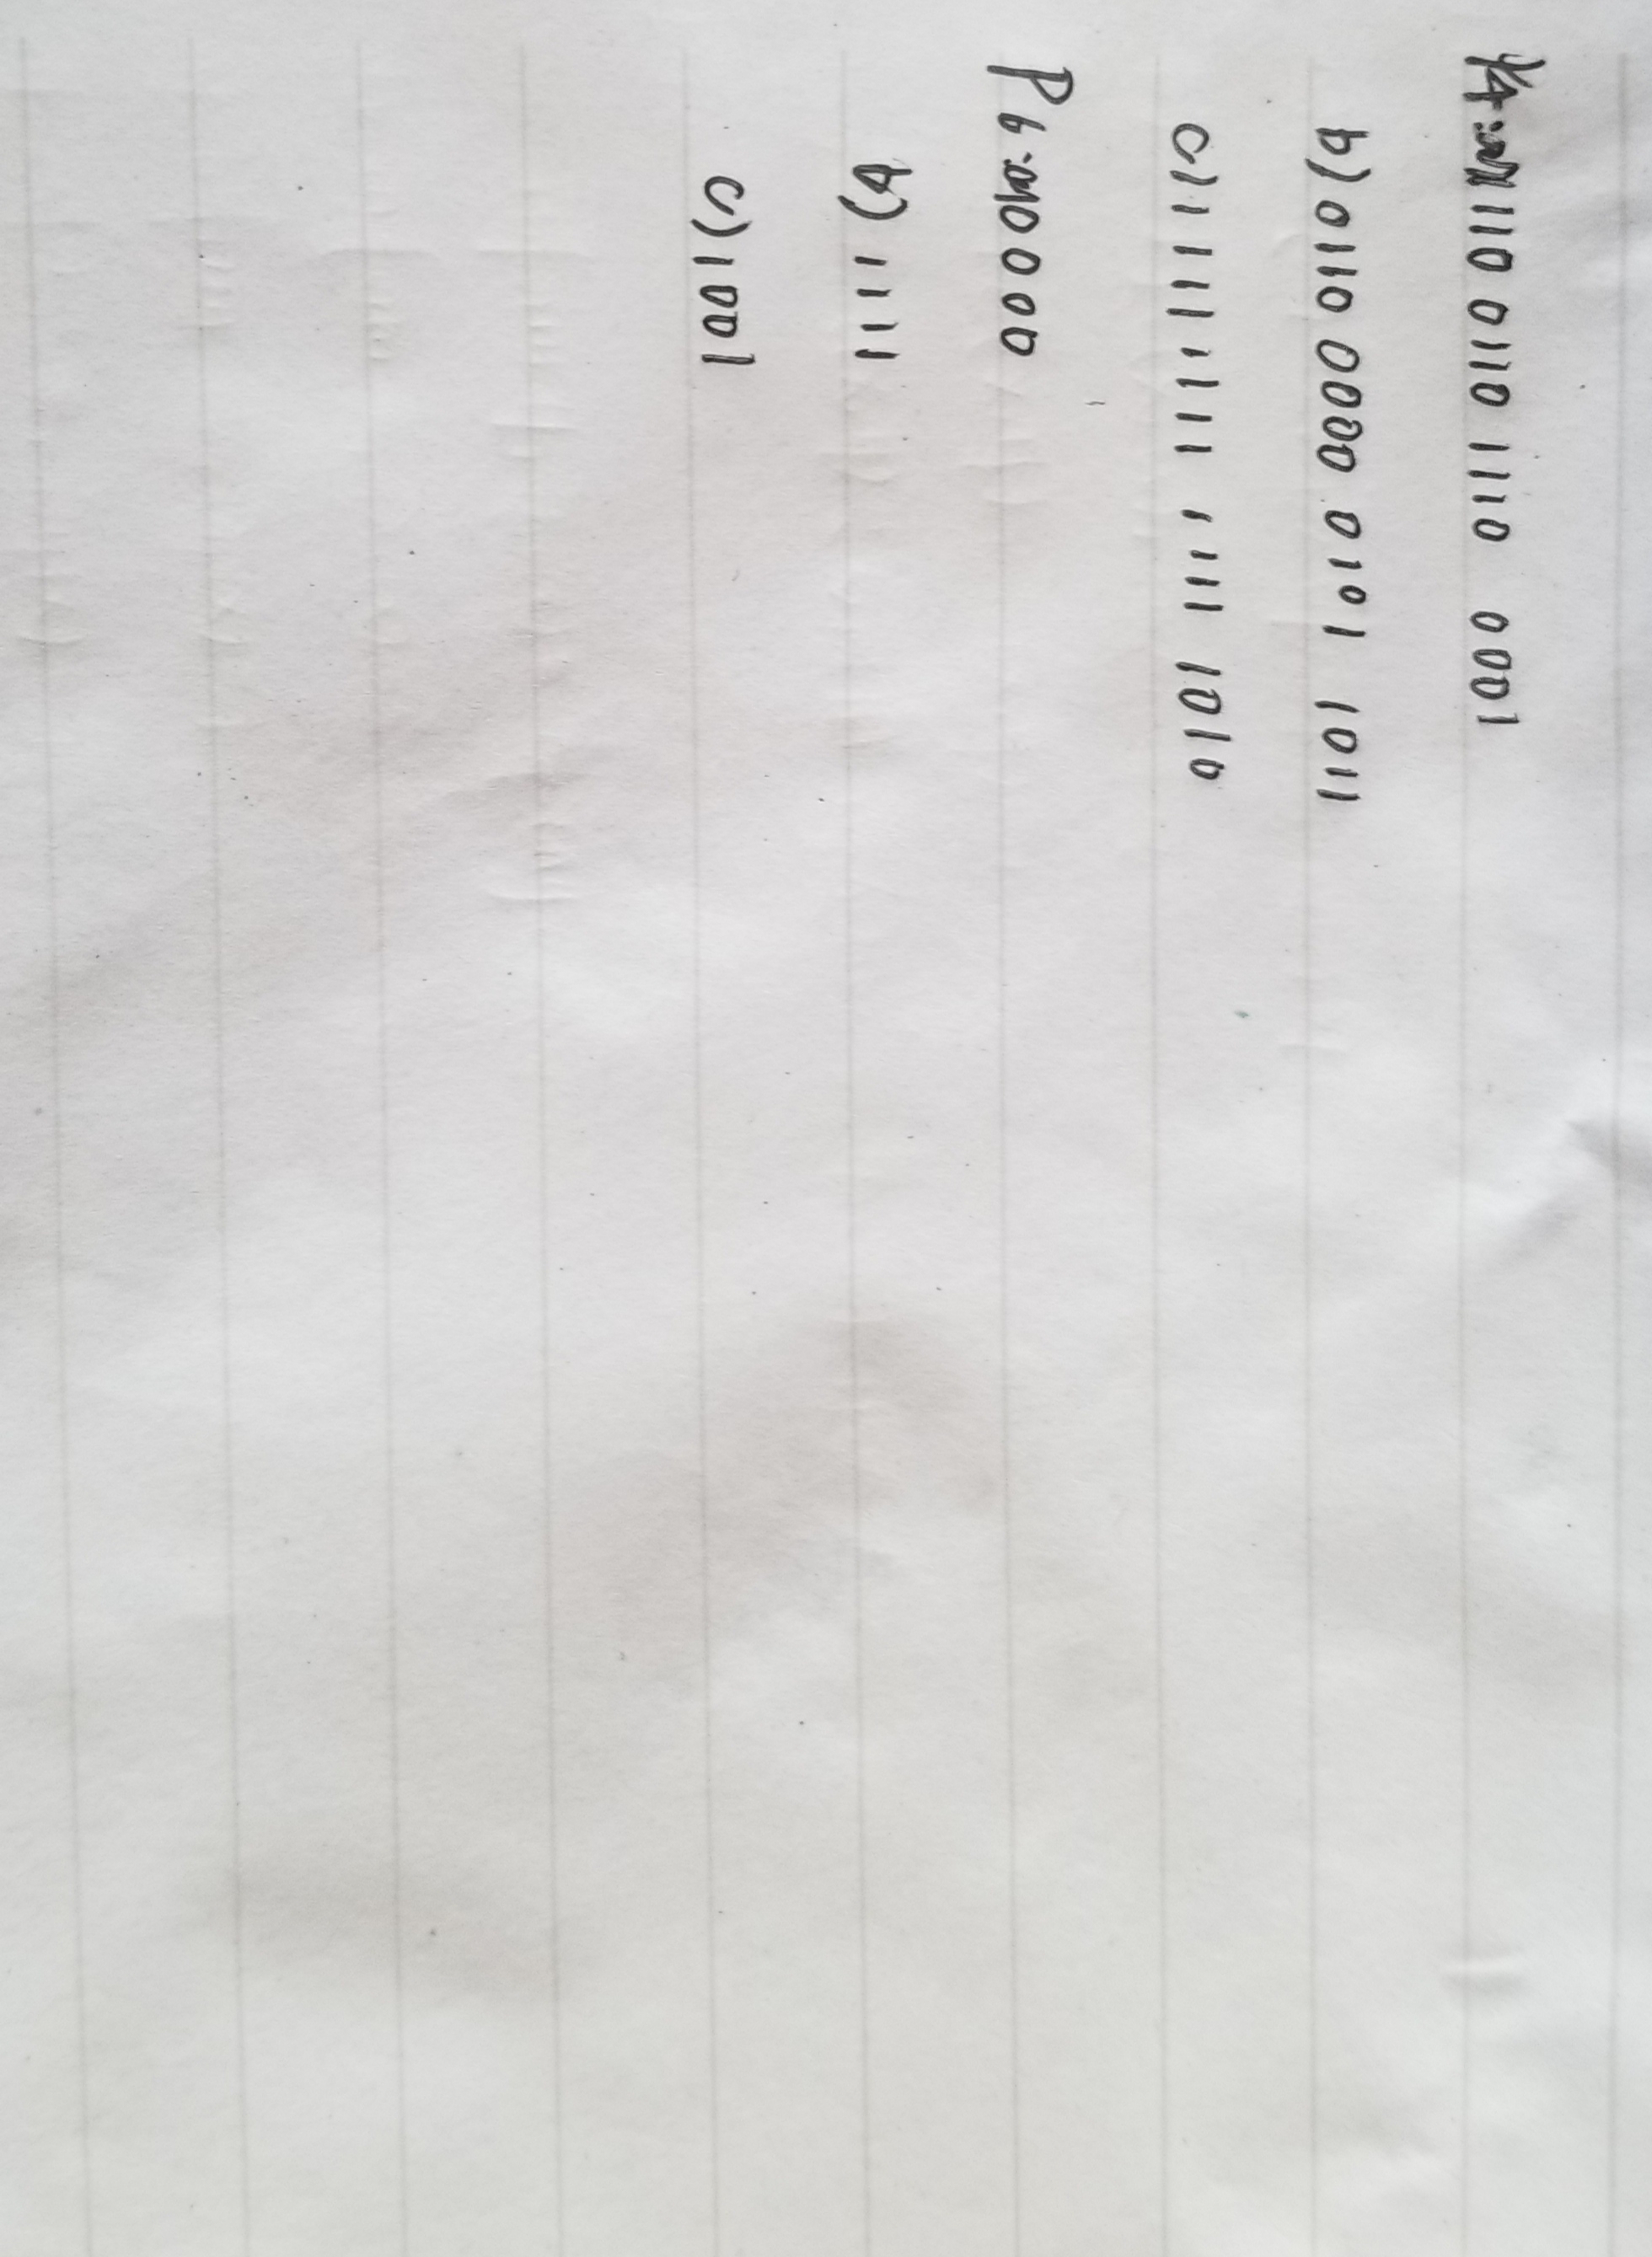 1110 0110 1110 0001
b) 010 0000 0101 1011
c) 1111 1111 1111 1010
P6. a) 0000
b) 1111
c) 1001